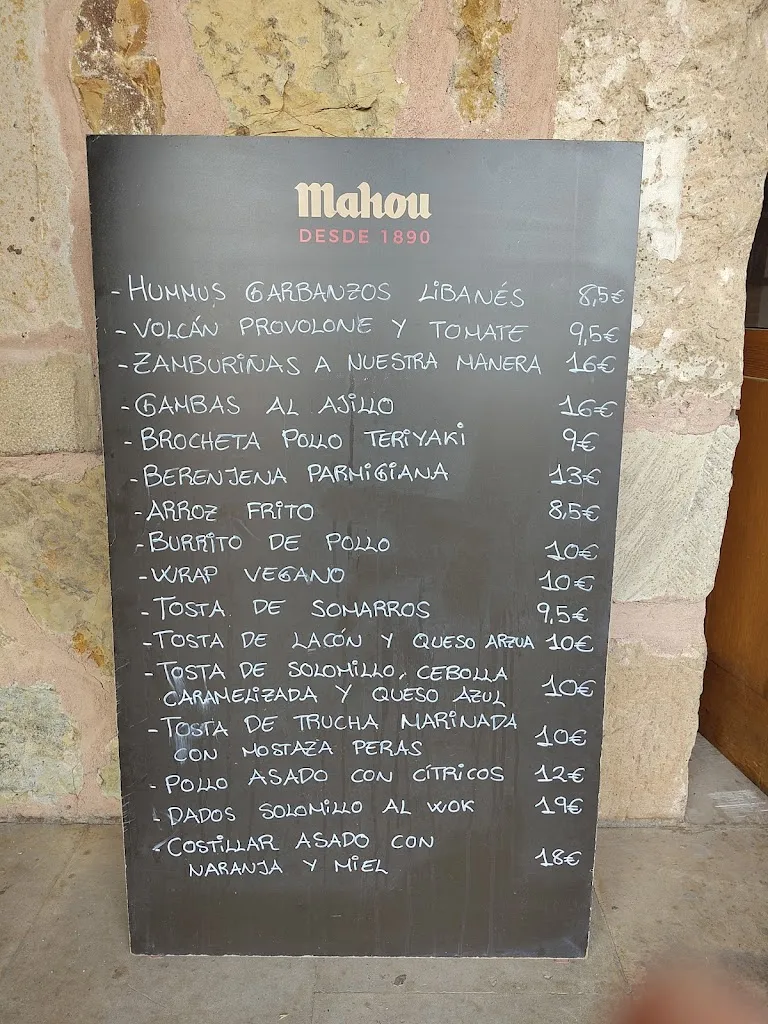 Mahou
DESDE 1890
- HUMMUS GARBANZOS LIBANÉS 8,5€
- VOLCÁN PROVOLONE Y TOMATE 9,5€
- ZAMBURIÑAS A NUESTRA MANERA 16€
- GAMBAS AL AJILLO 16€
- BROCHETA POLLO TERIYAKI 9€
- BERENJENA PARMIGIANA 13€
- ARROZ FRITO 8,5€
- BURRITO DE POLLO 10€
- WRAP VEGANO 10€
- TOSTA DE SOMARROS 9,5€
- TOSTA DE LACÓN Y QUESO ARZUA 10€
- TOSTA DE SOLOMILLO, CEBOLLA
CARAMELIZADA Y QUESO AZUL 10€
- TOSTA DE TRUCHA MARINADA
CON MOSTAZA PERAS 10€
- POLLO ASADO CON CÍTRICOS 12€
- DADOS SOLOMILLO AL WOK 19€
- COSTILLAR ASADO CON
NARANJA Y MIEL 18€